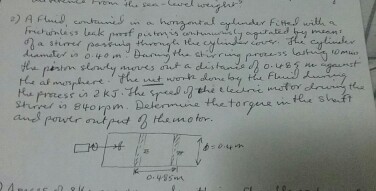 from the sea-level weight
c) A Fluid, contained in a horizontal cylinder fitted with a
frictionless leak proof piston is continuously agitated by means
of a stirrer passing through the cylinder cover. The cylinder
diameter is 0.40m. During the stirring process lasting 10min
the piston slowly moves out a distance of 0.485m against
the atmosphere. The net work done by the fluid during
the process is 2KJ. The speed of the electric motor driving the
stirrer is 840rpm. Determine the torque in the shaft
and power output of the motor.
ϕ=0.4m
0.485m